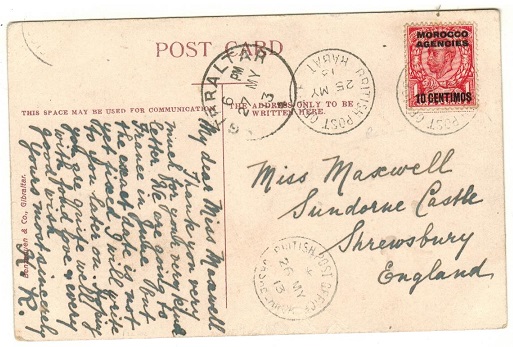 POST CARD
THIS SPACE MAY BE USED FOR COMMUNICATION
THE ADDRESS ONLY TO BE
WRITTEN HERE.
MOROCCO
AGENCIES
10 CENTIMOS
GIBRALTAR
PM
MY
13
BRITISH POST OFFICE
RABAT
25 MY
13
BRITISH POST OFFICE
26 MY
13
Miss Maxwell
Sundorne Castle
Shrewsbury
England
My dear Miss Maxwell
Thank you very
much for your very kind
letter. We are going to
France in June but
the exact date is not
yet fixed. I will write
to you later on. Hoping
you are quite well
with kind love & every
good wish
Yours most sincerely
& Co., Gibraltar.